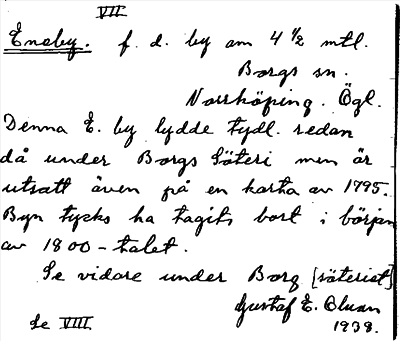 VII
Eneby. f. d. by om 4 1/2 mtl.
Borgs sn.
Norrköping. Ögl.
Denna E. by lydde tydl. redan
då under Borgs Säteri men är
utsatt även på en karta av 1795.
Byn tycks ha tagits bort i början
av 1800-talet.
Se vidare under Borg [säteriet]
Gustaf E.
Se VIII. 1938.